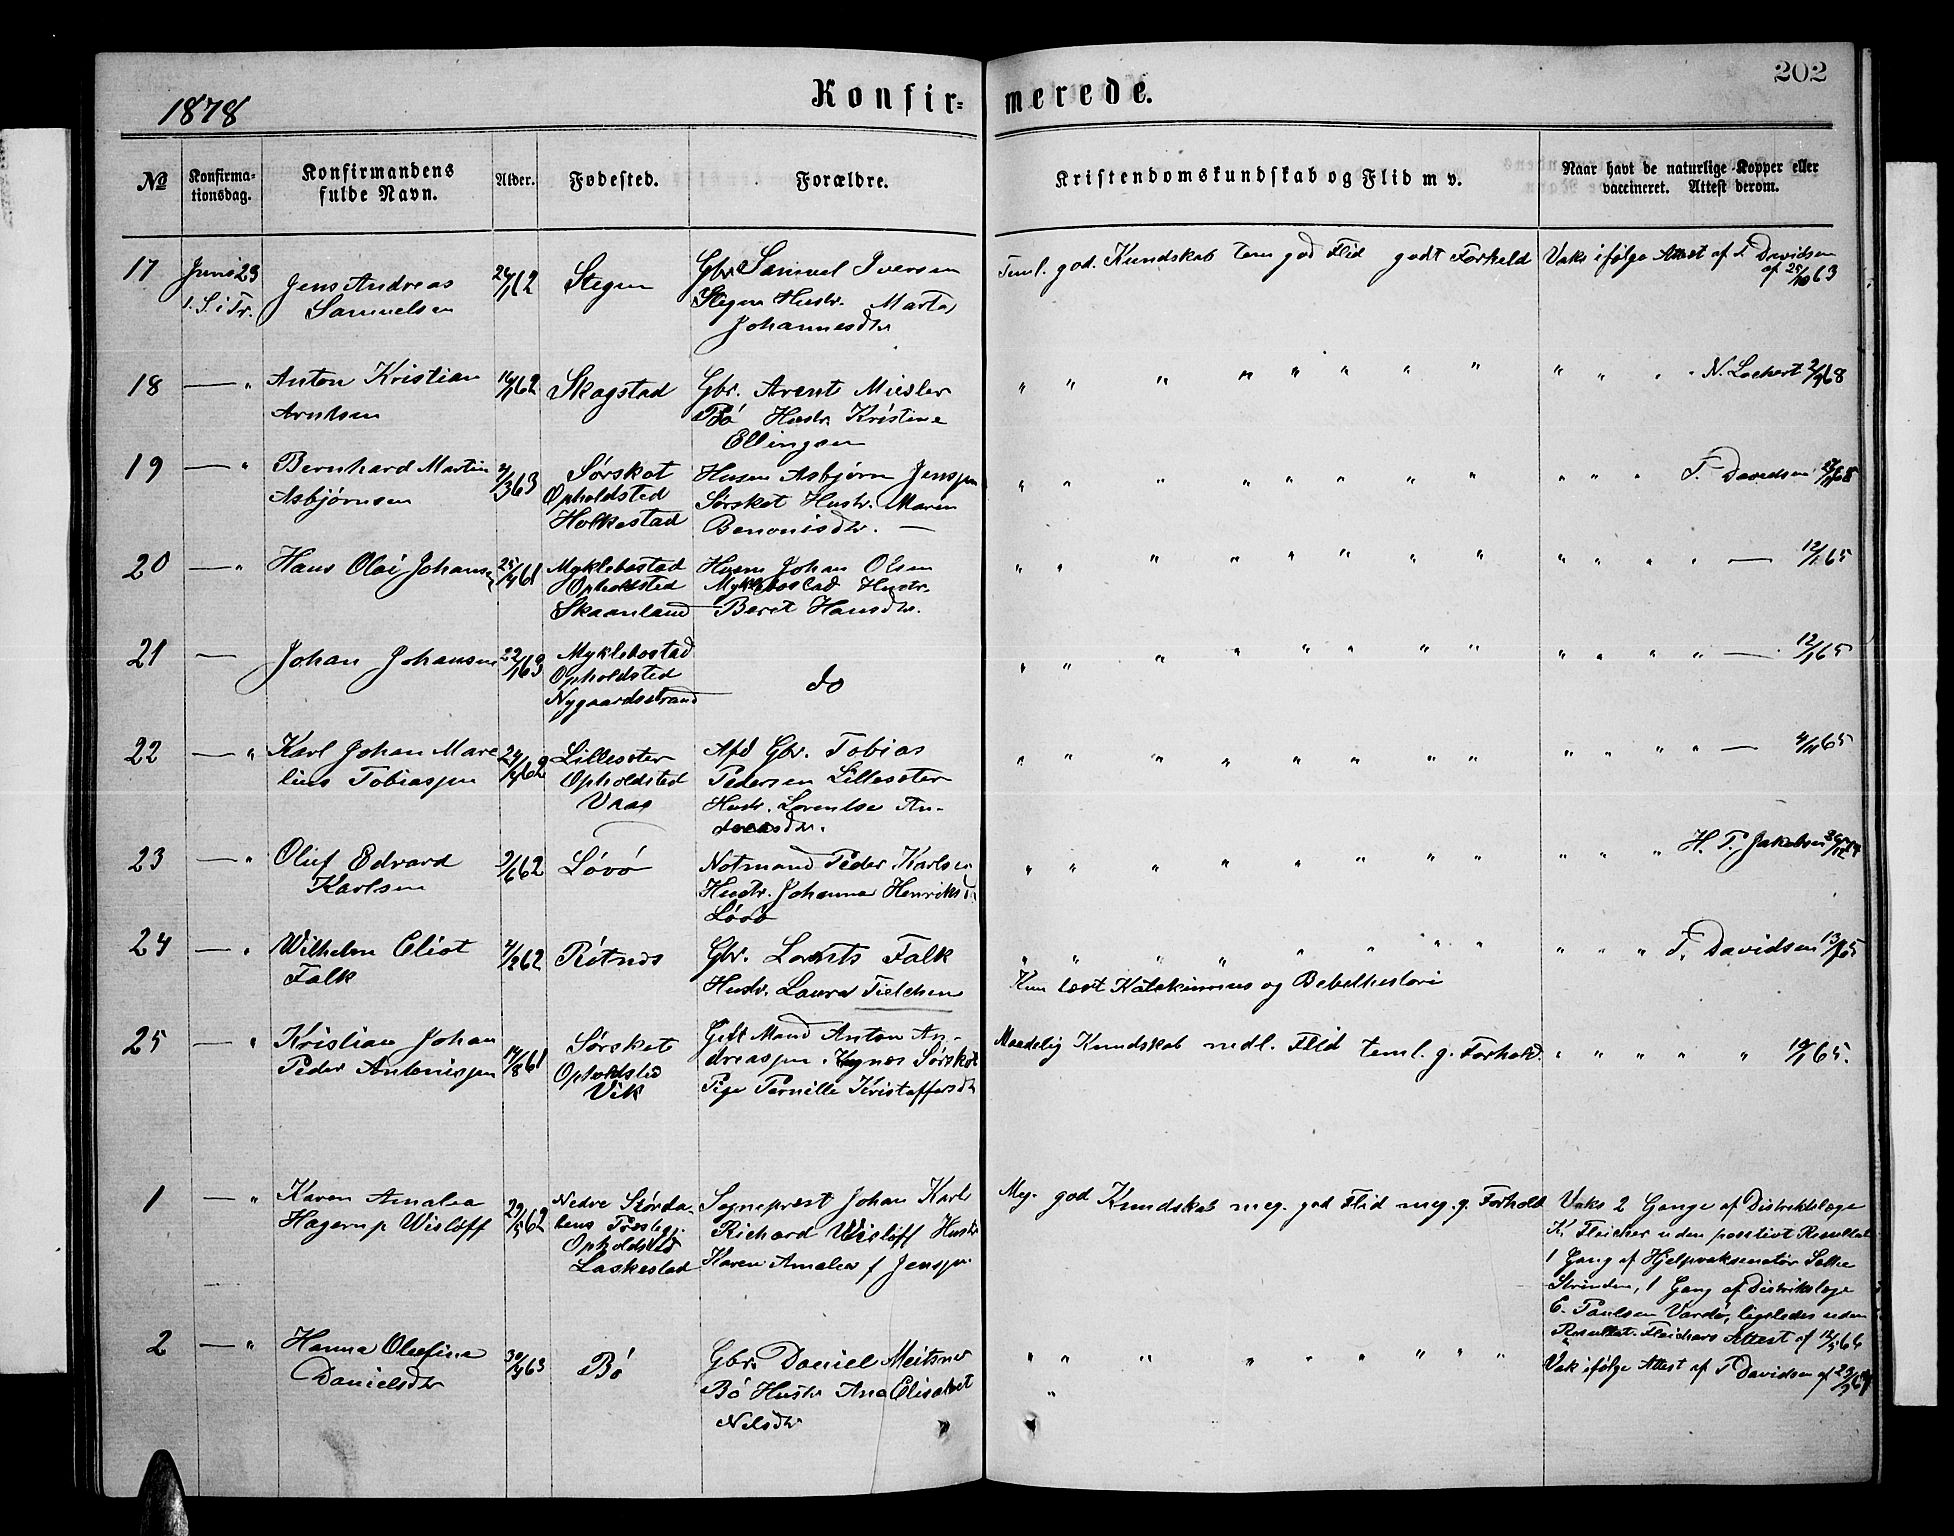 202
1878
Konfir=
merede.
No
Konfirma-
tionsdag.
Konfirmandens
fulde Navn.
Alder.
Fødested.
Forældre.
Kristendomskundskab og Flid m v.
Naar havt de naturlige Kopper eller
vaccineret. Attest derom.
17 Juni 23
1. S. i Tr.
Jens Andreas
Samuelsen
Stegen
Gbr. Samuel Iversen
Stegen Hustr. Marta
Johannesdtr
Teml. god. Kundskab tem god Flid godt Forhold
Vaks ifølge Attest af T Davidsen
18 — "
Anton Kristian
Arntsen
Skagstad
Gbr. Arent
Bö Hustr. Kristine
Ellingsen
" " " " " " " "
" " " " N. Lochert
19 — "
Bernhard Martin
Asbjørnsen
Sørskot
Opholdsted
Holkestad
Husm Asbjørn Jenssen
Sørskot Hustr. Maren
Benonisdtr. —
" " " " " " " "
" " " T. Davidsen
20 — "
Hans Olai Johansen
25/4 61
Myklebostad
Opholdsted
Skaanland
Husm Johan Olsen
Myklebostad Hustr.
Beret Hansdtr.
" " " " " " " "
" " " " — 12/1 65
21 —
Johan Johansen
22/1 63
Myklebostad
Opholdsted
Nygaardsstrand
do
" " " " " " " "
" " " " — 12/1 65
22 — "
Karl Johan Mare
lius Tobiassen
Lillesæter
Opholdsted
Vaag
Afd Gbr. Tobias
Pedersen Lillesæter
Hustr. Lorentse An-
dreasdtr.
" " " " " " " "
" " " " —
23 — "
Oluf Edvard
Karlsen
Lövö
Notmand Peder Karlsen
Hustr. Johanna Henriksd.
Lövö
" " " " " " " "
" " " H. P. Jakobsen
24 — "
Wilhelm Eliot
Falk
Gbr. Lorents Falk
Hustr. Laura
" " " " " " " "
Kun læst Katekismus og Bibelhistori
" " " T. Davidsen
25 "
Kristian Johan
Peder Antonissen
14/8 61
Sørskot
Opholdsted
Vik
Gift Mand Anton An-
dreassen Sørskot
Pige Pernille Kristoffersdtr
Maadelig Kundskab mdl. Flid teml. g. Forhold.
" " " " "
1 — "
Karen Amalia
Hagerup Wisløff
29/5 62
Nedre Størda-
lens Præstegj.
Opholdsted
Laskestad
Sogneprest Johan Karl
Richard Wisløff Hustr
Karen Amalia f Jenssen
Meg. god Kundskab meg. god Flid meg. g. Forhold
Vaks 2 Gange af Distriktslæge
K. Fleicher uden positivt Resultat
1 Gang af Hjelpvaksinatør
Strinden, 1 Gang af Distrikslæge
C. Paulsen Vardø, ligeledes uden
Resultat. Fleichers Attest af
2 — "
Hanna Olufina
Danielsdtr
Bö
Gbr. Daniel Meitsner
Bö Hustr Ana Elisabet
Nilsdtr
" " " " " " " " "
"
Vak ifølge Attest af T Davidsen af